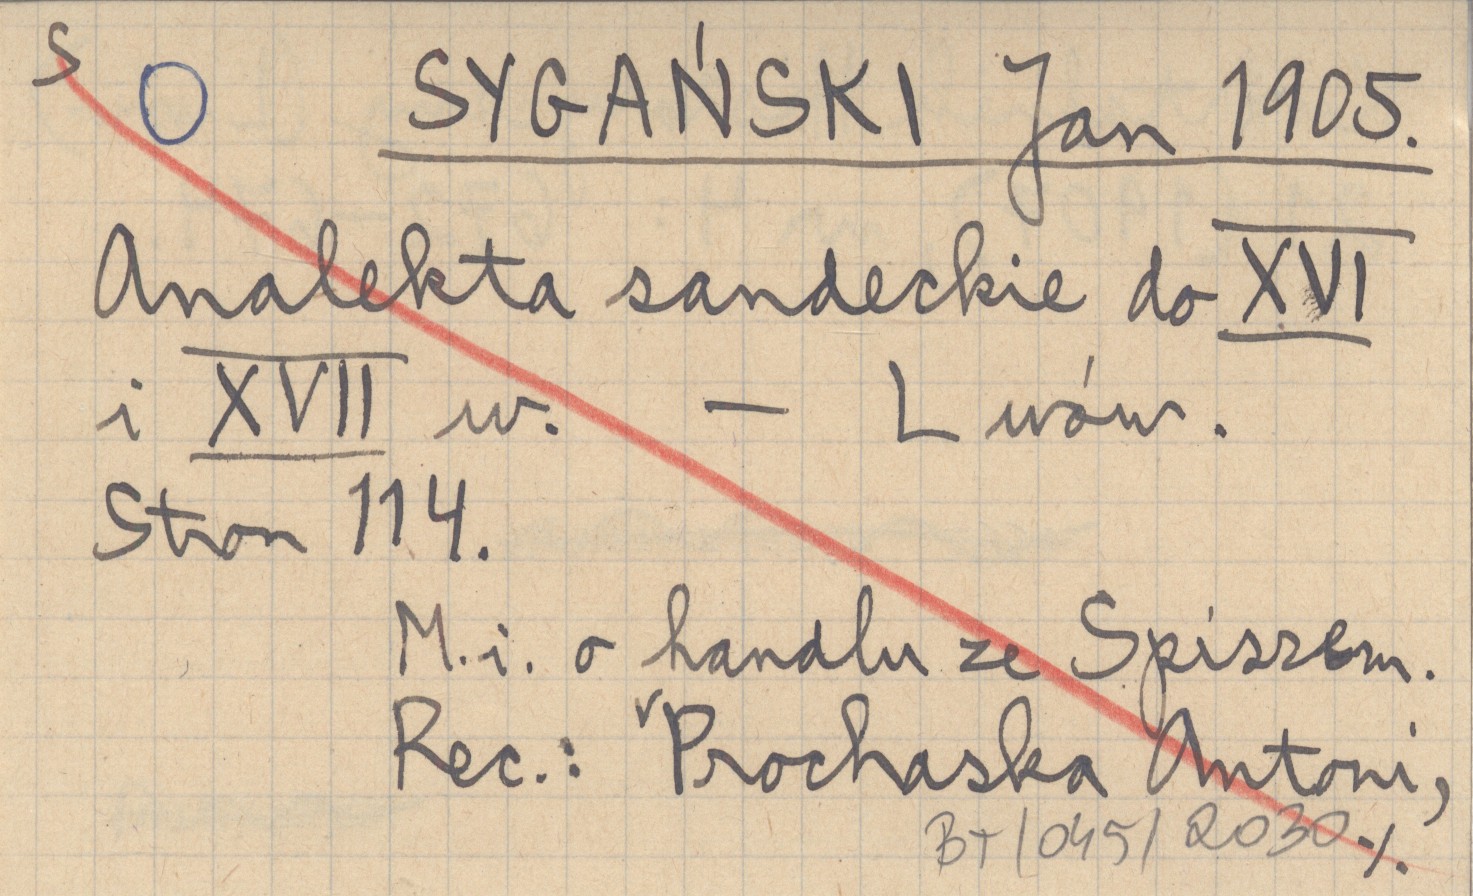 S O SYGAŃSKI Jan 1905.
Analekta sandeckie do XVI
i XVII w. — Lwów.
Stron 114.
M.i. o handlu ze Spiszem.
Rec.: Prochaska Antoni,
BT/045/2030 ./.